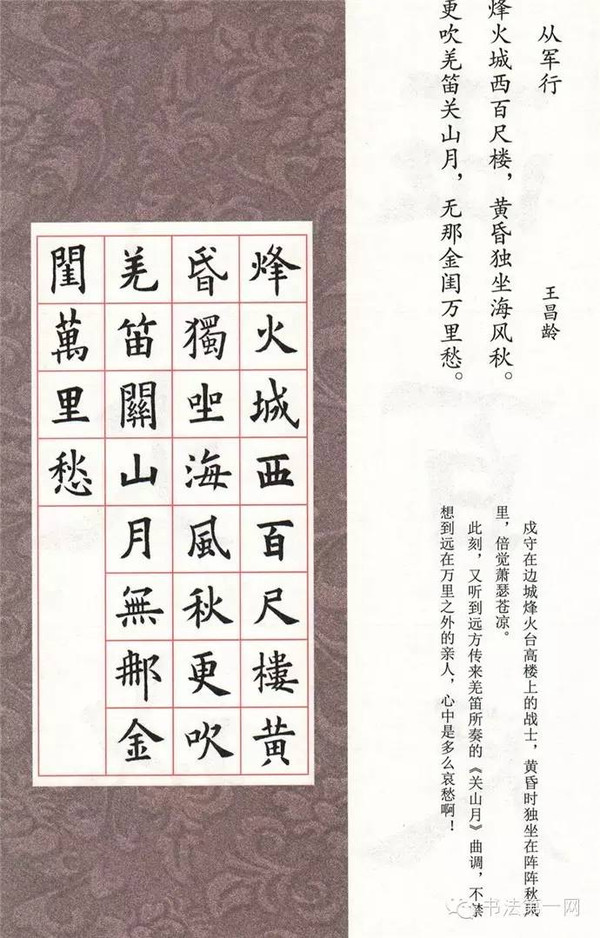 从军行
王昌龄
烽火城西百尺楼，黄昏独坐海风秋。
更吹羌笛关山月，无那金闺万里愁。
戍守在边城烽火台高楼上的战士，黄昏时独坐在阵阵秋风
里，倍觉萧瑟苍凉。
此刻，又听到远方传来羌笛所奏的《关山月》曲调，不禁
想到远在万里之外的亲人，心中是多么哀愁啊！
烽火城西百尺樓黄
昏獨坐海風秋更吹
羌笛關山月無那金
閨萬里愁
书法第一网